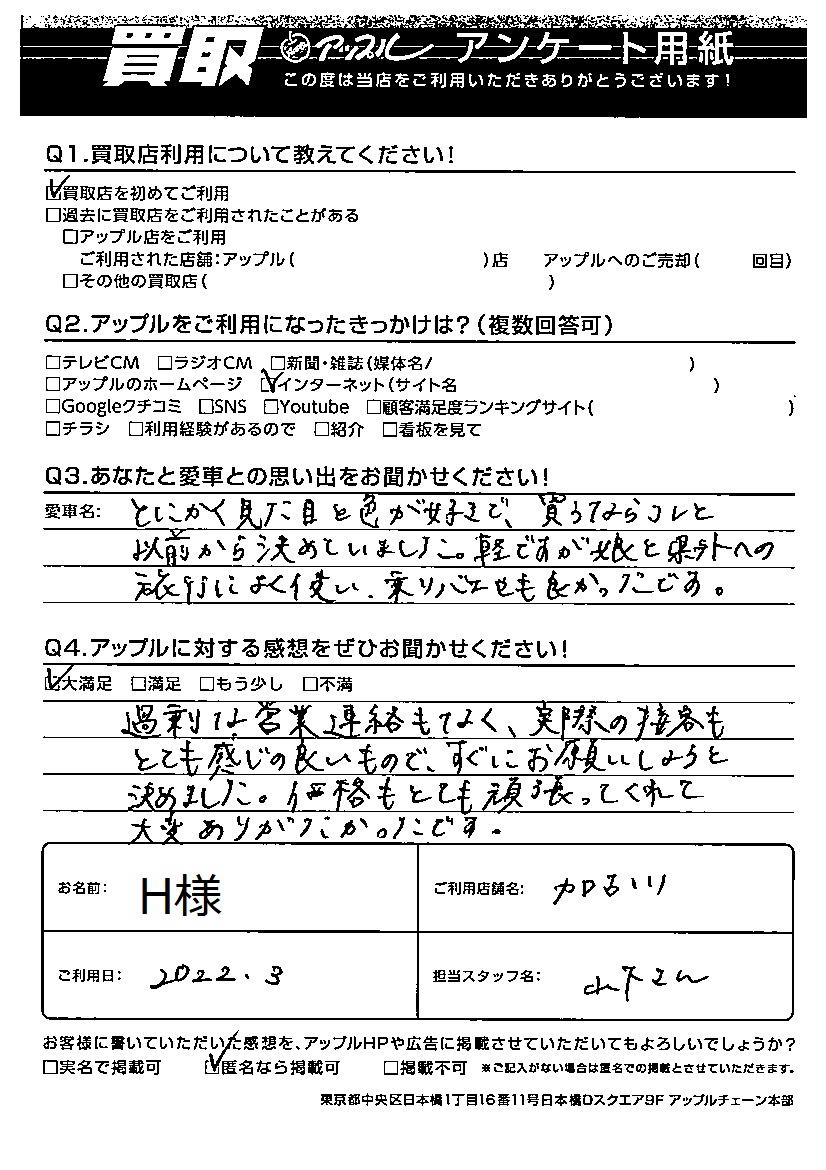 買取 アップル アンケート用紙
この度は当店をご利用いただきありがとうございます!
Q1.買取店利用について教えてください!
☑買取店を初めてご利用
□過去に買取店をご利用されたことがある
□アップル店をご利用
ご利用された店舗:アップル( )店 アップルへのご売却( 回目)
□その他の買取店( )
Q2.アップルをご利用になったきっかけは?(複数回答可)
□テレビCM □ラジオCM □新聞・雑誌(媒体名/ )
□アップルのホームページ ☑インターネット(サイト名 )
□Googleクチコミ □SNS □Youtube □顧客満足度ランキングサイト( )
□チラシ □利用経験があるので □紹介 □看板を見て
Q3.あなたと愛車との思い出をお聞かせください!
愛車名: とにかく見た目と色が好きで、買うならコレと
以前から決めていました。軽ですが娘と県外への
旅行によく使い、乗りバエせも良かったです。
Q4.アップルに対する感想をぜひお聞かせください!
☑大満足 □満足 □もう少し □不満
過剰な営業連絡もなく、実際の接客も
とても感じの良いもので、すぐにお願いしようと
決めました。価格もとても頑張ってくれて
大変ありがたかったです。
お名前: H様 ご利用店舗名: 加古川
ご利用日: 2022.3 担当スタッフ名: 山下さん
お客様に書いていただいた感想を、アップルHPや広告に掲載させていただいてもよろしいでしょうか?
□実名で掲載可 ☑匿名なら掲載可 □掲載不可 ※ご記入がない場合は匿名での掲載とさせていただきます。
東京都中央区日本橋1丁目16番11号日本橋Dスクエア9F アップルチェーン本部